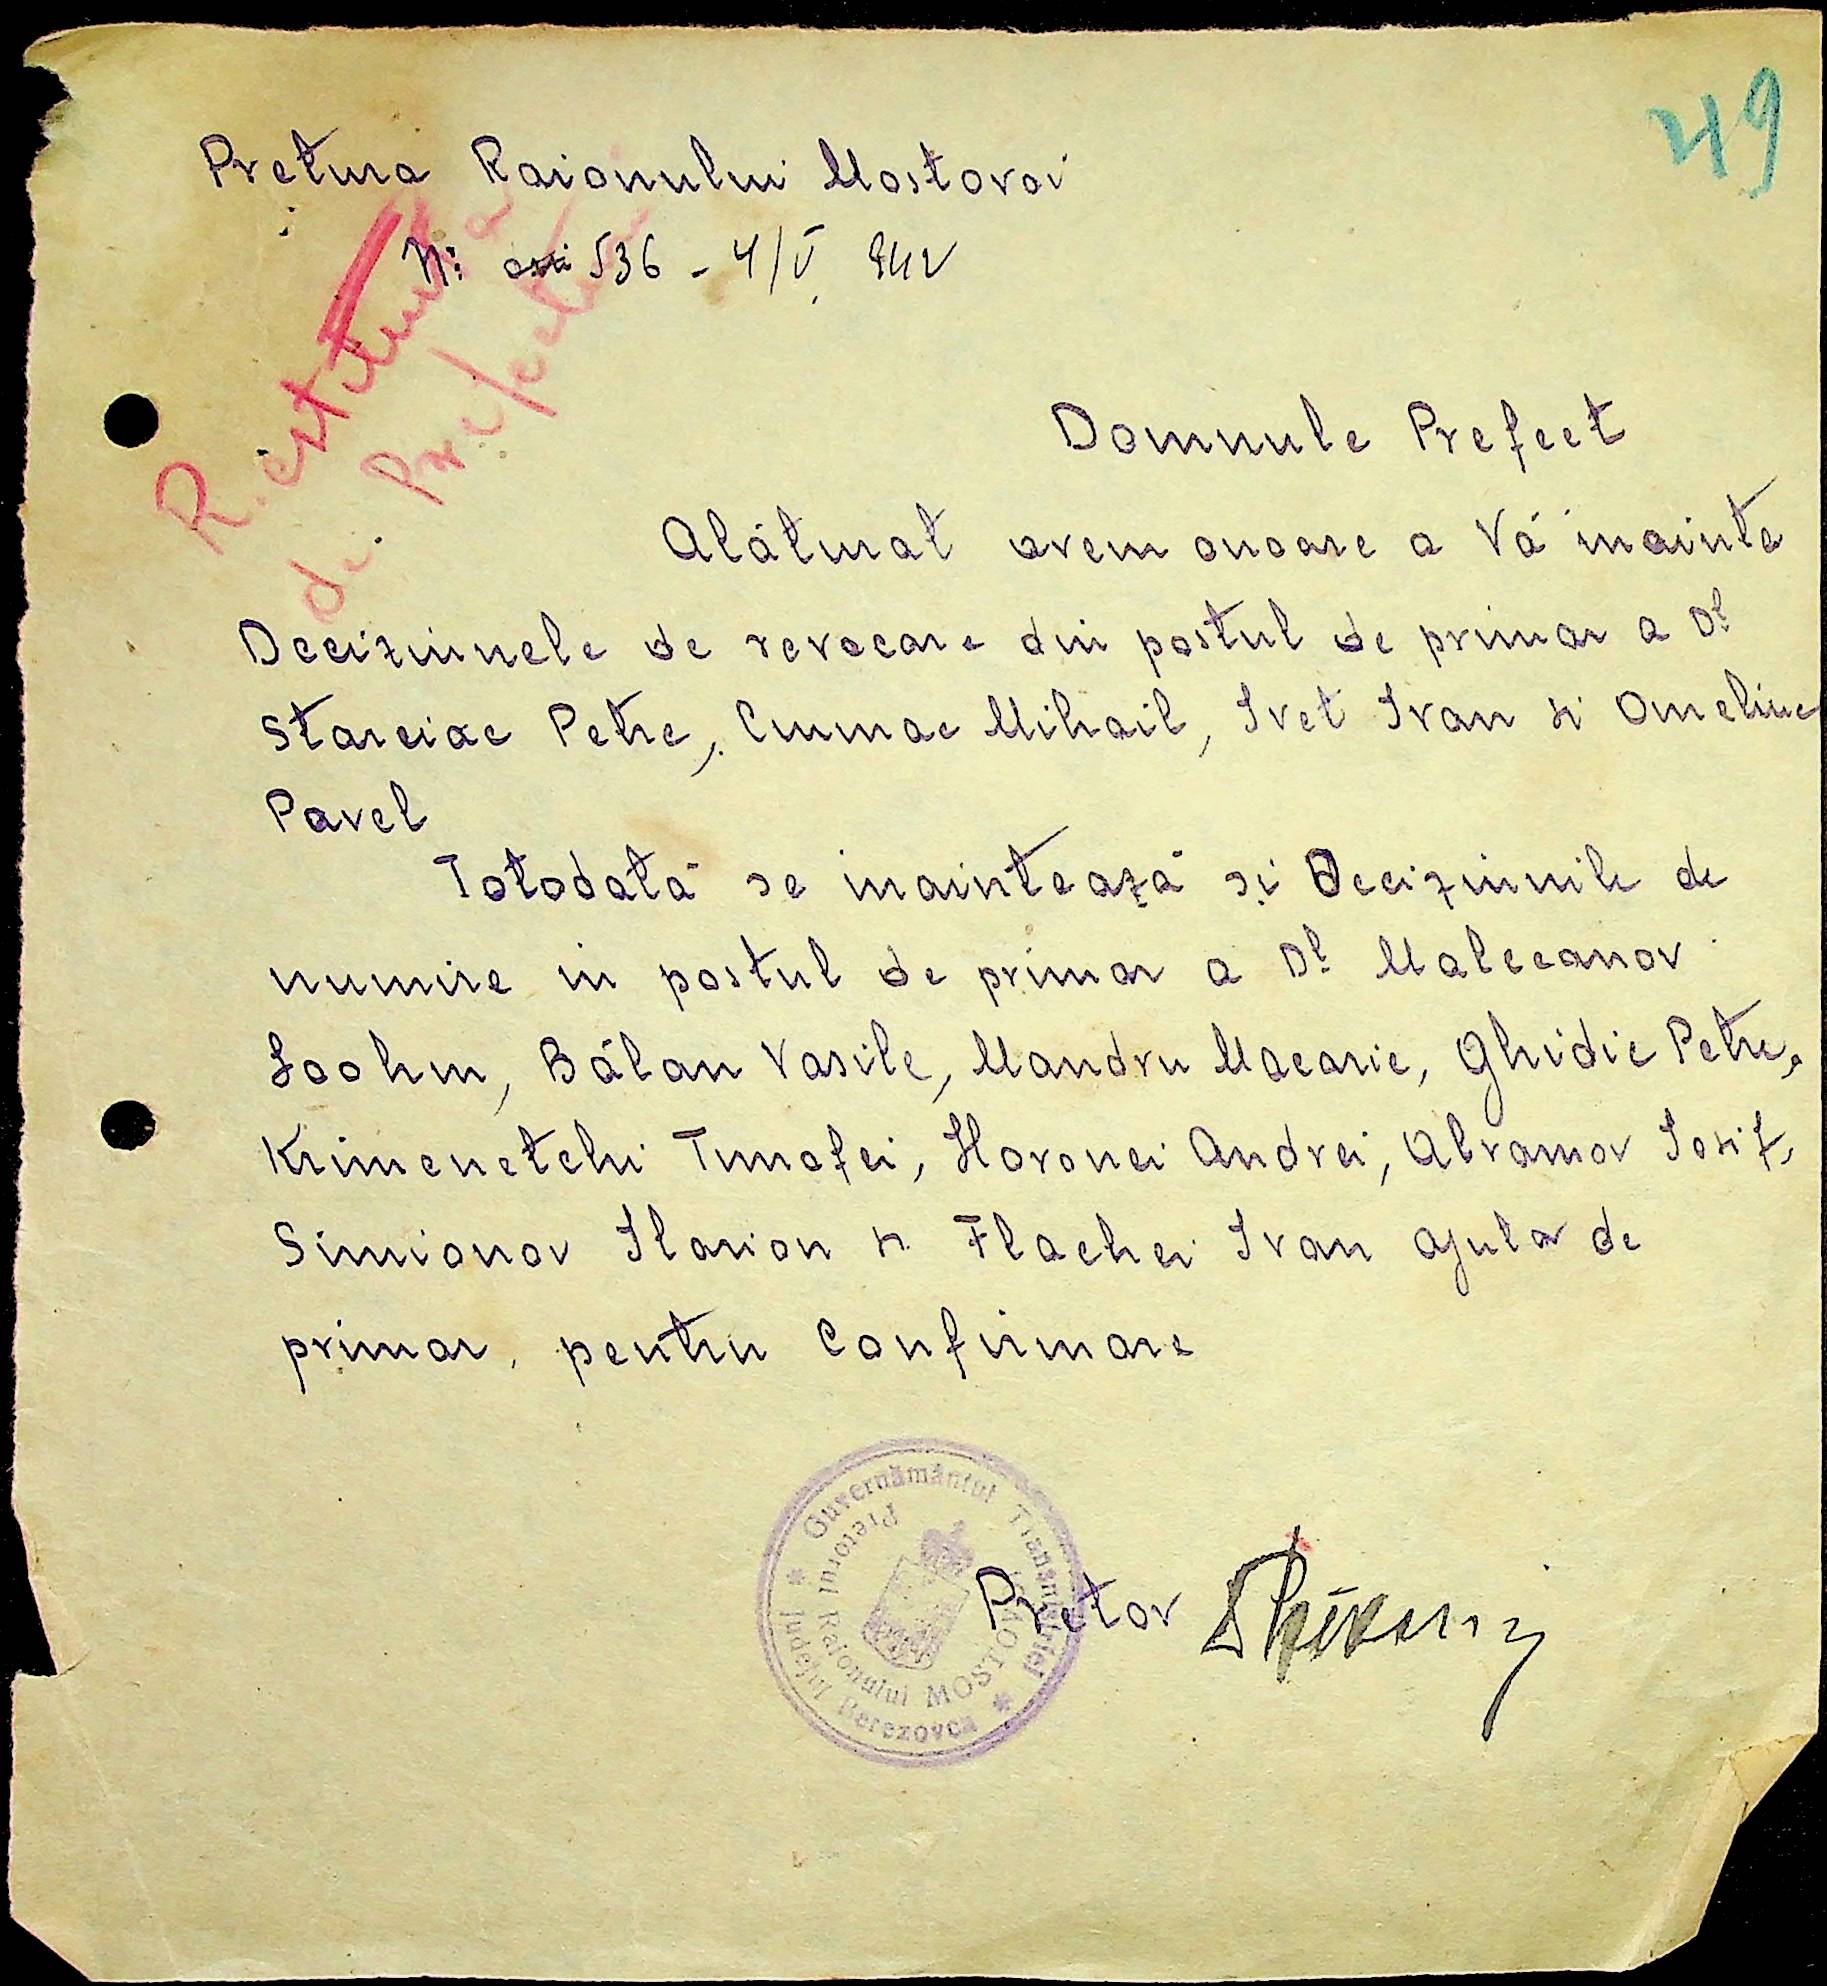 49
Pretura Raionului Mostovoi
Nr. 536 - 4/V 942
Restituită
de Prefectura
Domnule Prefect
Alăturat avem onoare a Vă inainta
Deciziunele de revocare din postul de primar a Dl
Starciac Petre, Cumac Mihail, Ivet Ivan si Omeliuc
Pavel
Totodată se inaintează și Deciziunile de
numire in postul de primar a Dl Maleeanov
Ioohim, Bălan Vasile, Mandru Macarie, Ghidic Petre,
Krimenetchi Timofei, Horonei Andrei, Abramov Iosif,
Simionov Ilarion si Flachei Ivan ajutor de
primar, pentru confirmare
Guvernământul Transnistriei
Pretorul Raionului MOSTOVOI
Județul Berezovca
Pretor